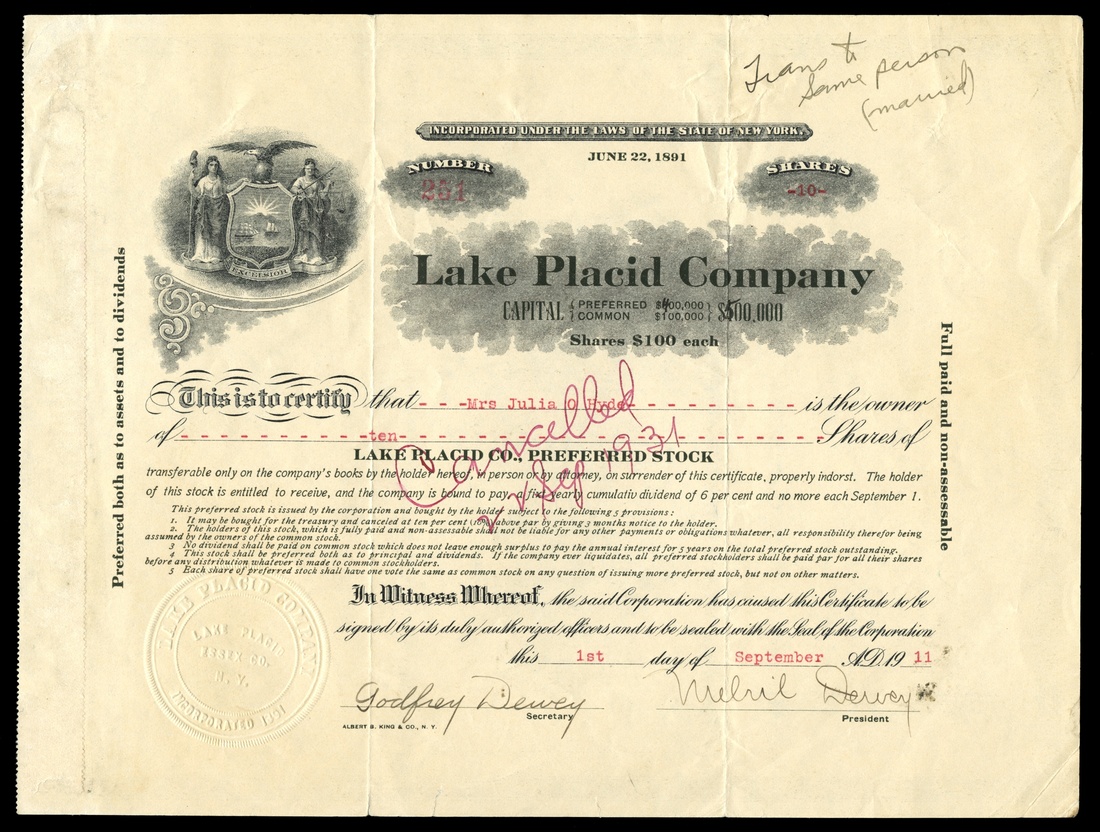 Trans to
same person
(married)
INCORPORATED UNDER THE LAWS OF THE STATE OF NEW YORK.
JUNE 22, 1891
NUMBER
251
SHARES
-10-
EXCELSIOR
Lake Placid Company
CAPITAL { PREFERRED $400,000 } $500,000
{ COMMON $100,000 }
Shares $100 each
Preferred both as to assets and to dividends
Full paid and non-assessable
This is to certify that - - - Mrs Julia O Hyde - - - - - - - - - is the owner
of - - - - - - - - - - - ten - - - - - - - - - - - - - - - - - - - - - - - Shares of
LAKE PLACID CO., PREFERRED STOCK
transferable only on the company's books by the holder hereof, in person or by attorney, on surrender of this certificate, properly indorst. The holder
of this stock is entitled to receive, and the company is bound to pay, a fixt yearly cumulativ dividend of 6 per cent and no more each September 1.
This preferred stock is issued by the corporation and bought by the holder subject to the following 5 provisions :
1. It may be bought for the treasury and canceled at ten per cent (10%) above par by giving 3 months notice to the holder.
2. The holders of this stock, which is fully paid and non-assessable shall not be liable for any other payments or obligations whatever, all responsibility therefor being
assumed by the owners of the common stock.
3 No dividend shall be paid on common stock which does not leave enough surplus to pay the annual interest for 5 years on the total preferred stock outstanding.
4 This stock shall be preferred both as to principal and dividends. If the company ever liquidates, all preferred stockholders shall be paid par for all their shares
before any distribution whatever is made to common stockholders.
5 Each share of preferred stock shall have one vote the same as common stock on any question of issuing more preferred stock, but not on other matters.
Cancelled
22 Sep 1931
In Witness Whereof, the said Corporation has caused this Certificate to be
signed by its duly authorized officers and to be sealed with the Seal of the Corporation
this 1st day of September A.D. 19 11
LAKE PLACID COMPANY
LAKE PLACID
ESSEX CO.
N. Y.
INCORPORATED 1891
Godfrey Dewey
Secretary
Melvil Dewey
President
ALBERT B. KING & CO., N. Y.